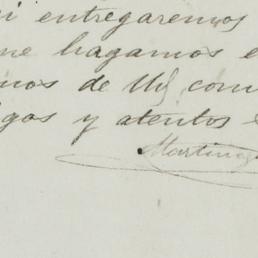 i entregaremos
me hagamos e
mos de Ud com
igos y atentos
Martin